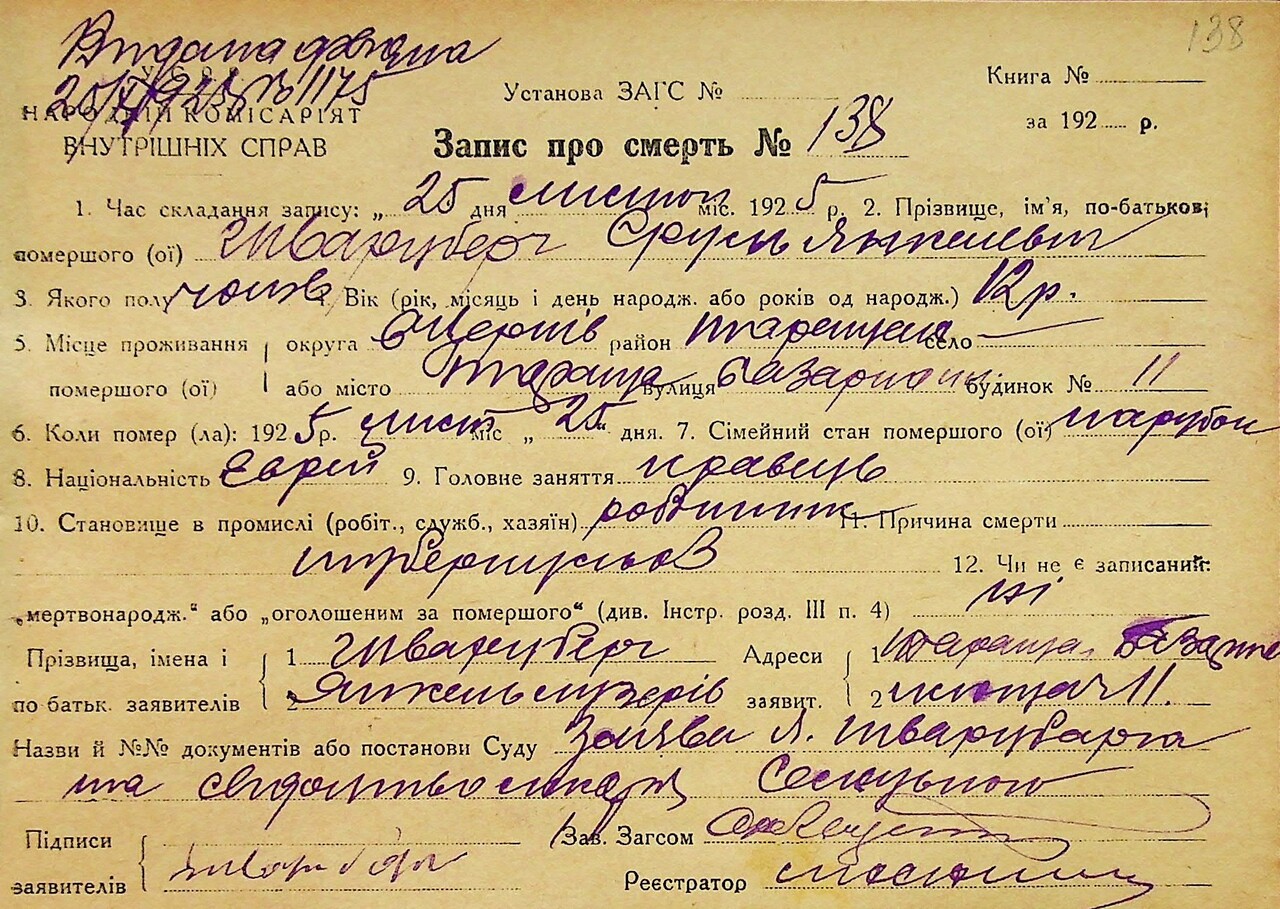 138
Видана
У.С.Р.Р.
№ 1175
НАРОДНІЙ КОМІСАРІЯТ
ВНУТРІШНІХ СПРАВ
Установа ЗАГС №
Книга №
за 192 р.
Запис про смерть № 138
1. Час складання запису: „ 25 дня листоп міс. 192 5 р. 2. Прізвище, ім'я, по-батькові
помершого (ої) Шварцберг Сруль Янкелевич
3. Якого полу чолов. Вік (рік, місяць і день народж. або років од народж.) 12 р.
5. Місце проживання округа Б Церків район Таращан село —
помершого (ої) або місто Тараща вулиця Базарна будинок № 11
6. Коли помер (ла): 192 5 р. лист міс „ 25 “ дня. 7. Сімейний стан помершого (ої) парубок
8. Національність Єврей 9. Головне заняття кравець
10. Становище в промислі (робіт., служб., хазяїн) робітник 11. Причина смерти
туберкульоз 12. Чи не є записаний:
„мертвонародж.“ або „оголошеним за помершого“ (див. Інстр. розд. III п. 4) ні
Прізвища, імена і 1 Шварцберг Адреси 1 Тараща
по батьк. заявителів 2 Янкель заявит. 2 11.
Назви й №№ документів або постанови Суду Заява Я. Шварцберга
та свідоцтво
Підписи Зав. Загсом
заявителів Реєстратор